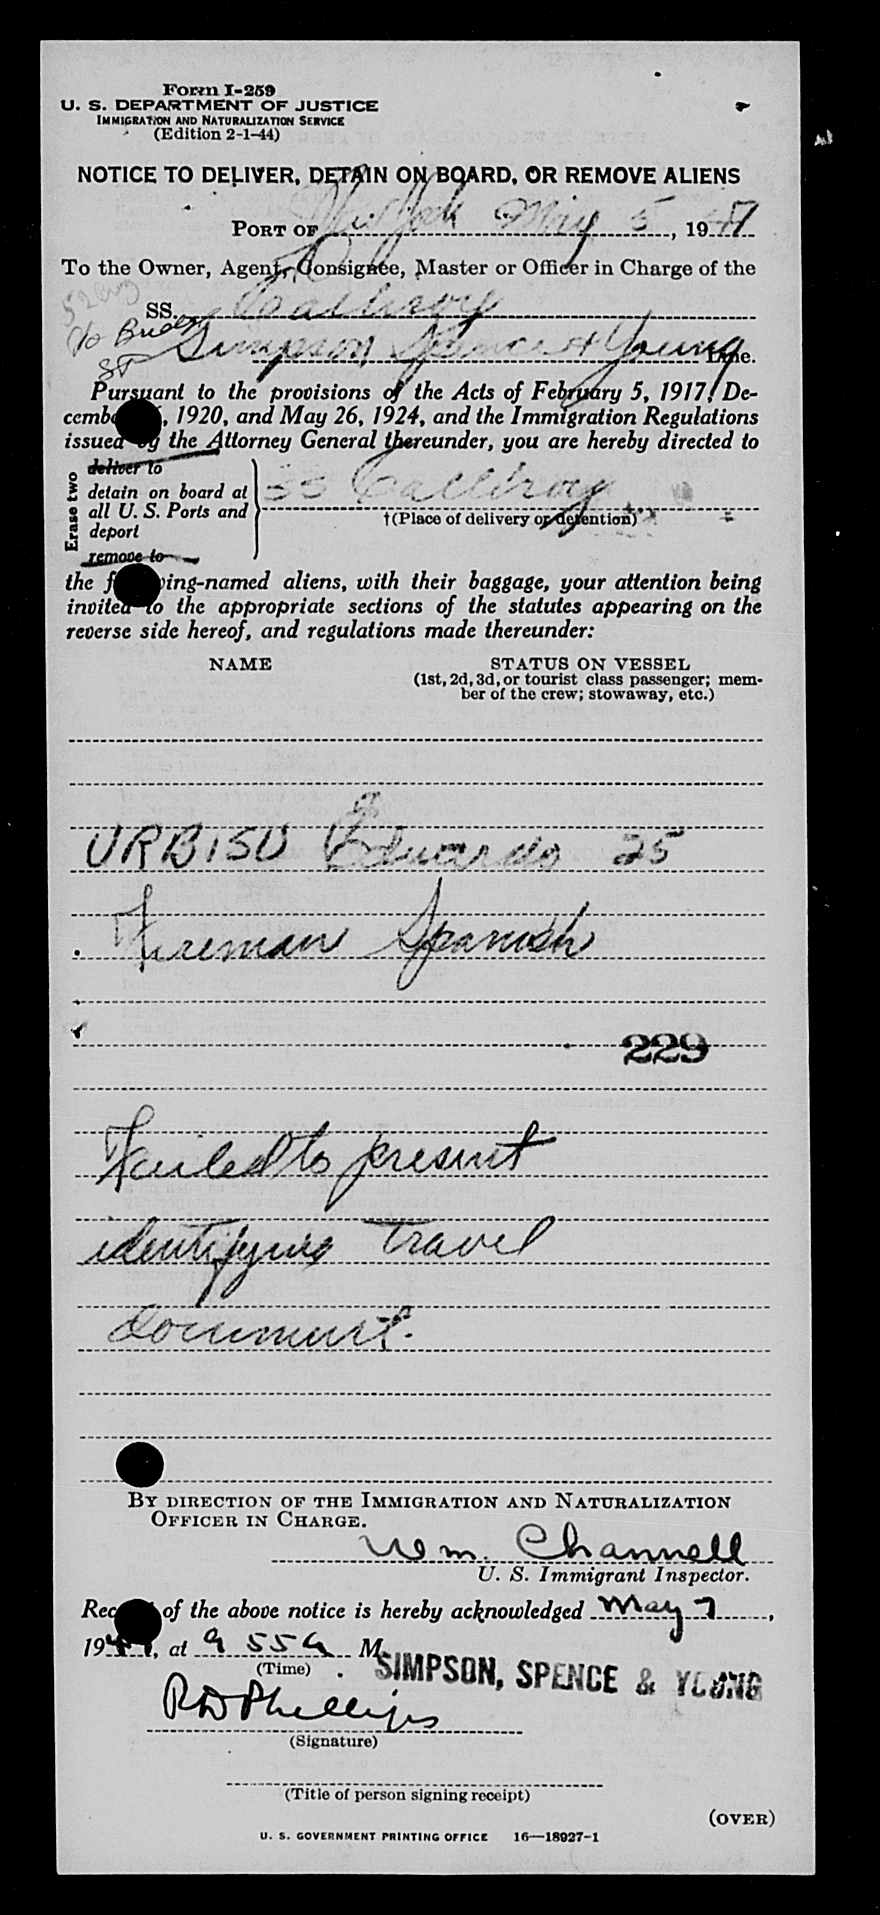 Form I-259
U. S. DEPARTMENT OF JUSTICE
IMMIGRATION AND NATURALIZATION SERVICE
(Edition 2-1-44)
NOTICE TO DELIVER, DETAIN ON BOARD, OR REMOVE ALIENS
PORT OF New York May 5, 1947
To the Owner, Agent, Consignee, Master or Officer in Charge of the
SS.
Simpson Spence & Young Line.
Pursuant to the provisions of the Acts of February 5, 1917, De-
cemb , 1920, and May 26, 1924, and the Immigration Regulations
issued by the Attorney General thereunder, you are hereby directed to
Erase two
deliver to
detain on board at
all U. S. Ports and
deport
remove to
SS
†(Place of delivery or detention)
the f ing-named aliens, with their baggage, your attention being
invited to the appropriate sections of the statutes appearing on the
reverse side hereof, and regulations made thereunder:
NAME STATUS ON VESSEL
(1st, 2d, 3d, or tourist class passenger; mem-
ber of the crew; stowaway, etc.)
URBISU Eduardo 25
Fireman Spanish
229
Failed to present
identifying travel
document.
BY DIRECTION OF THE IMMIGRATION AND NATURALIZATION
OFFICER IN CHARGE.
Wm. Channell
U. S. Immigrant Inspector.
Rec of the above notice is hereby acknowledged May 7,
194 , at 9 55 A M.
(Time)
SIMPSON, SPENCE & YOUNG
RD Phillips
(Signature)
(Title of person signing receipt)
(OVER)
U. S. GOVERNMENT PRINTING OFFICE 16—18927-1